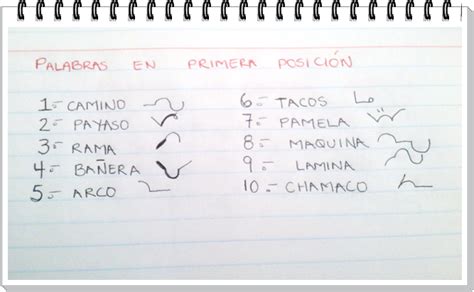 PALABRAS EN PRIMERA POSICIÓN
1.- CAMINO
2.- PAYASO
3.- RAMA
4.- BAÑERA
5.- ARCO
6.- TACOS
7.- PAMELA
8.- MAQUINA
9.- LAMINA
10.- CHAMACO